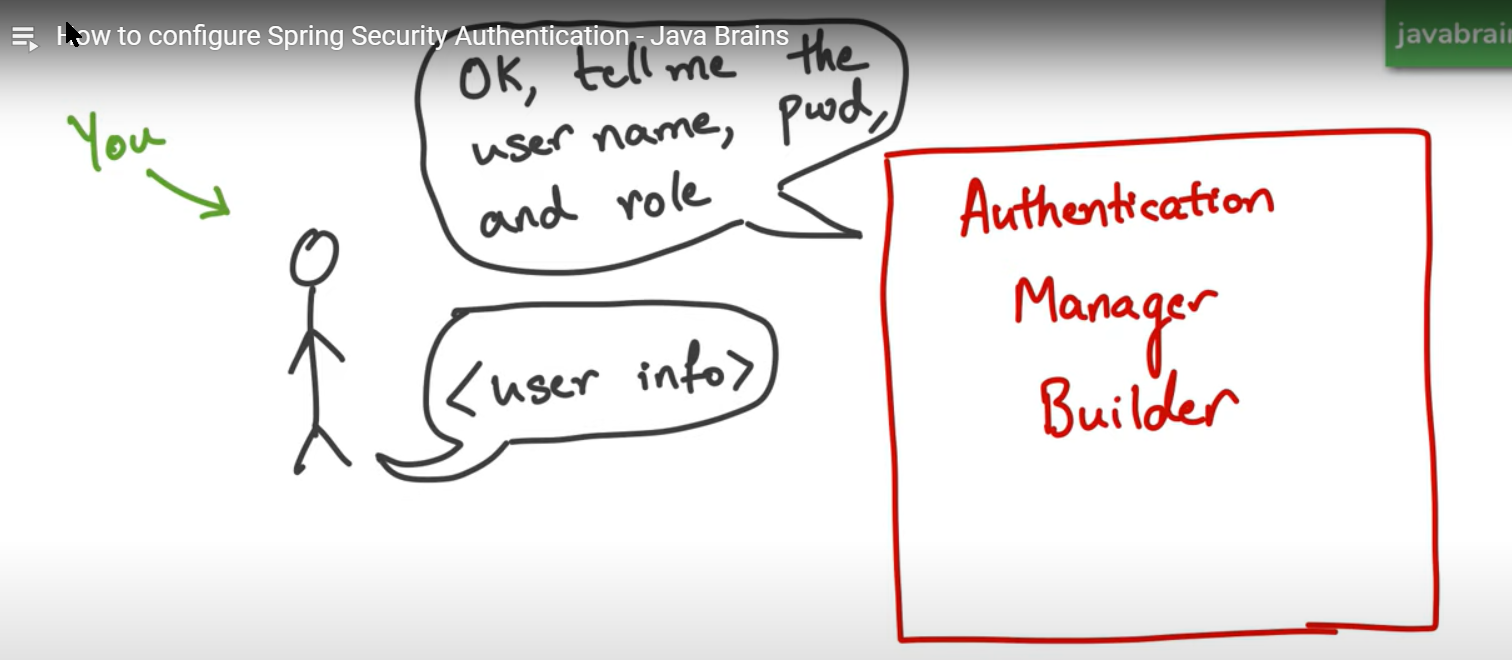 How to configure Spring Security Authentication - Java Brains
javabrai
You
OK, tell me the
user name, pwd,
and role
<user info>
Authentication
Manager
Builder